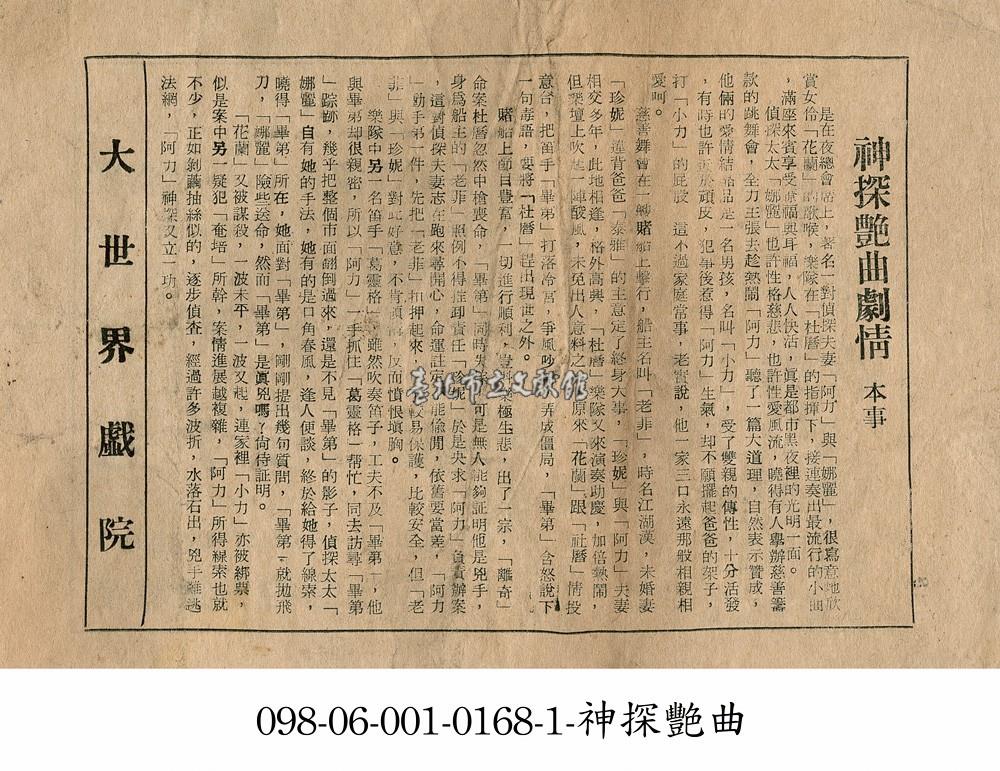 神探艷曲劇情 本事
是在夜總會席上,著名一對偵探夫妻「阿力」與「娜麗」,很寫意地欣
賞女伶「花蘭」的歌喉,樂隊在「杜曆」的指揮下,接連奏出最流行的小曲
,滿座來賓享受眼福與耳福,人人快活,眞是都市黑夜裡的光明一面。
偵探太太「娜麗」也許性格慈悲,也許性愛風流,曉得有人擧辦慈善籌
款的跳舞會,全力主張去趁熱鬧「阿力」聽了一篇大道理,自然表示贊成,
他倆的愛情結晶品是一名男孩,名叫「小力」,受了雙親的傳性,十分活發
,有時也許過於頑皮,犯事後惹得「阿力」生氣,却不願擺起爸爸的架子,
打「小力」的屁股 這不過家庭常事,老實說,他一家三口永遠那般相親相
愛呵。
慈善舞會在一艘賭船上擧行,船主名叫「老非」,時名江湖漢,未婚妻
「珍妮」違背爸爸「泰雅」的主意定了終身大事,「珍妮」與「阿力」夫妻
相交多年,此地相逢,格外高興,「杜曆」樂隊又來演奏助慶,加倍熱鬧,
但樂壇上吹起一陣酸風,未免出人意料之 原來「花蘭」跟「杜曆」情投
意合,把笛手「畢第」打落冷宮,爭風吃 弄成僵局,「畢第」含怒說下
一句毒語,要將「杜曆」趕出現世之外。
賭船上節目豐富,一切進行順利,豈料樂極生悲,出了一宗,「離奇」
命案杜曆忽然中槍喪命,「畢第」同時失 可是無人能夠証明他是兇手,
身爲船主的「老非」照例不得推卸責任「珍妮」於是央求「阿力」負責辦案
,這對偵探夫妻志在跑來尋開心,命運註定 能偷閒,依舊要當差,「阿力
」動手第一件,先把「老非」扣押起來, 較易保護,比較安全,但「老
非」與「珍妮」對此好意,不肯領 反而憤恨塡胸。
樂隊中另一名笛手「葛靈格」雖然吹奏笛子,工夫不及「畢第」,他
與畢弟却很親密,所以「阿力」一手抓住「葛靈格」帮忙,同去訪尋「畢第
」踪跡,幾乎把整個市面翻倒過來,還是不見「畢第」的影子,偵探太太「
娜麗」自有她的手法,她有的是口角春風,逢人便談,終於給她得了線索,
曉得「畢第」所在,她面對「畢第」,剛剛提出幾句質問,「畢第」就拋飛
刀,「娜麗」險些送命,然而「畢第」是眞兇嗎?尙待証明。
「花蘭」又被謀殺,一波未平,一波又起,連家裡「小力」亦被綁票,
似是案中另一疑犯「奄培」所幹,案情進展越複雜,「阿力」所得線索也就
不少,正如剝繭抽絲似的,逐步偵查,經過許多波折,水落石出,兇手難逃
法網,「阿力」神探又立一功。
大世界戲院
臺北市立文獻館
098-06-001-0168-1-神探艷曲